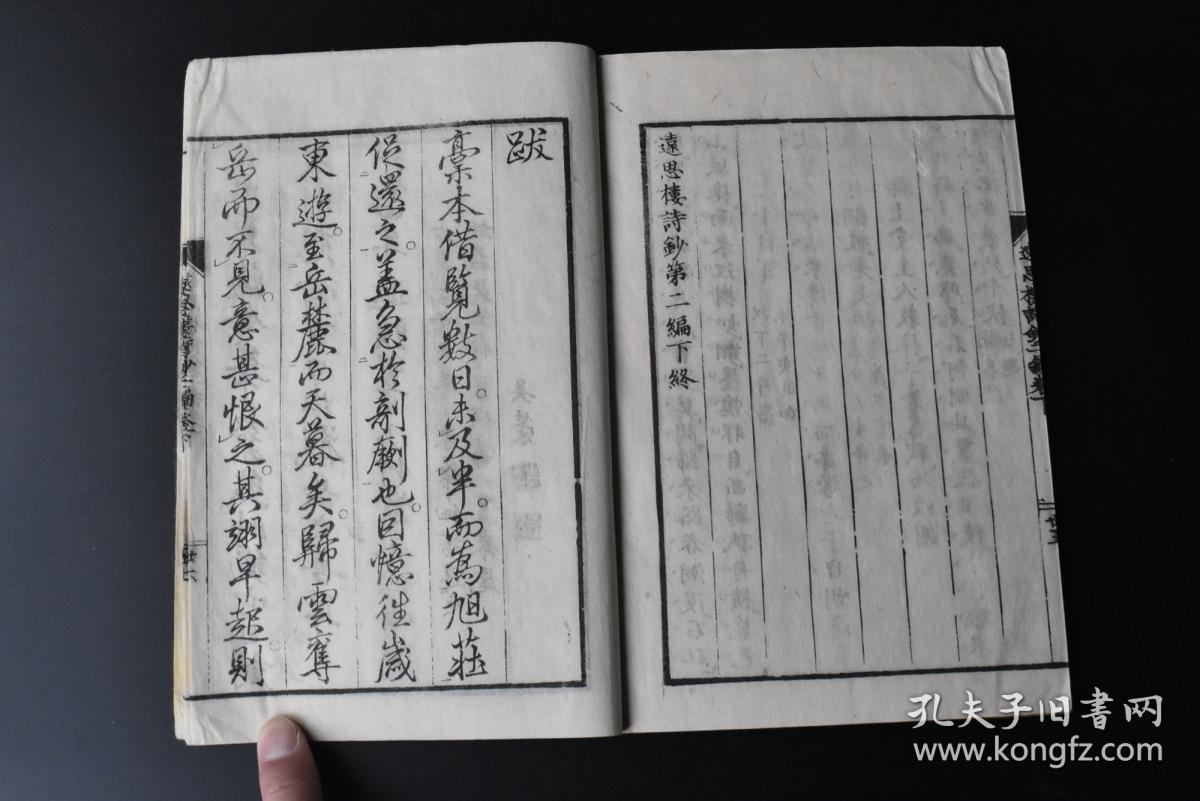 遠思樓詩鈔第二編下終
跋
稾本借覽數日。未及半。而爲旭莊
促還之。蓋急於剞劂也。回憶往歲
東遊。至岳麓而天暮矣。歸雲奪
岳而不見。意甚恨之。其翊早起則
遠思樓詩鈔二編卷下
廿六
孔夫子旧書网
www.kongfz.com